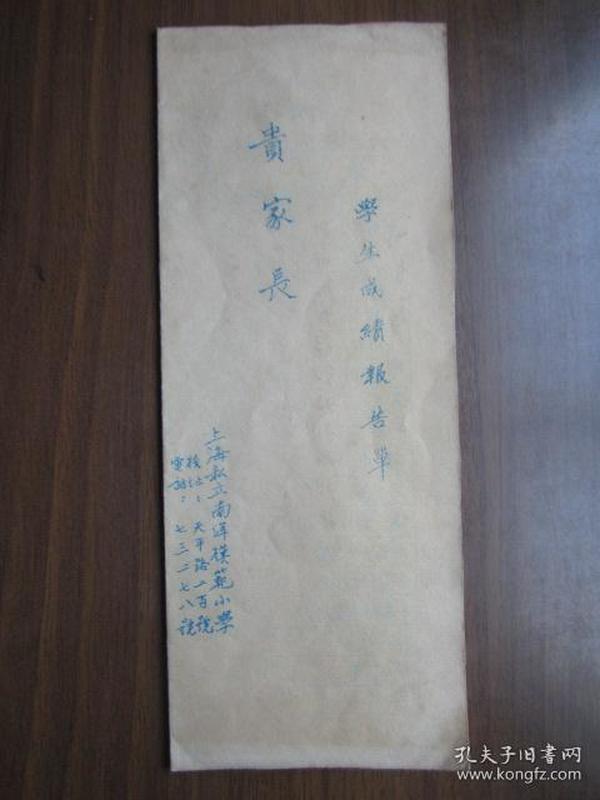 學生成績報告單
貴家長
上海私立南洋模範小學
校址：天平路二百號
電話：七三二七八號
孔夫子旧书网
www.kongfz.com